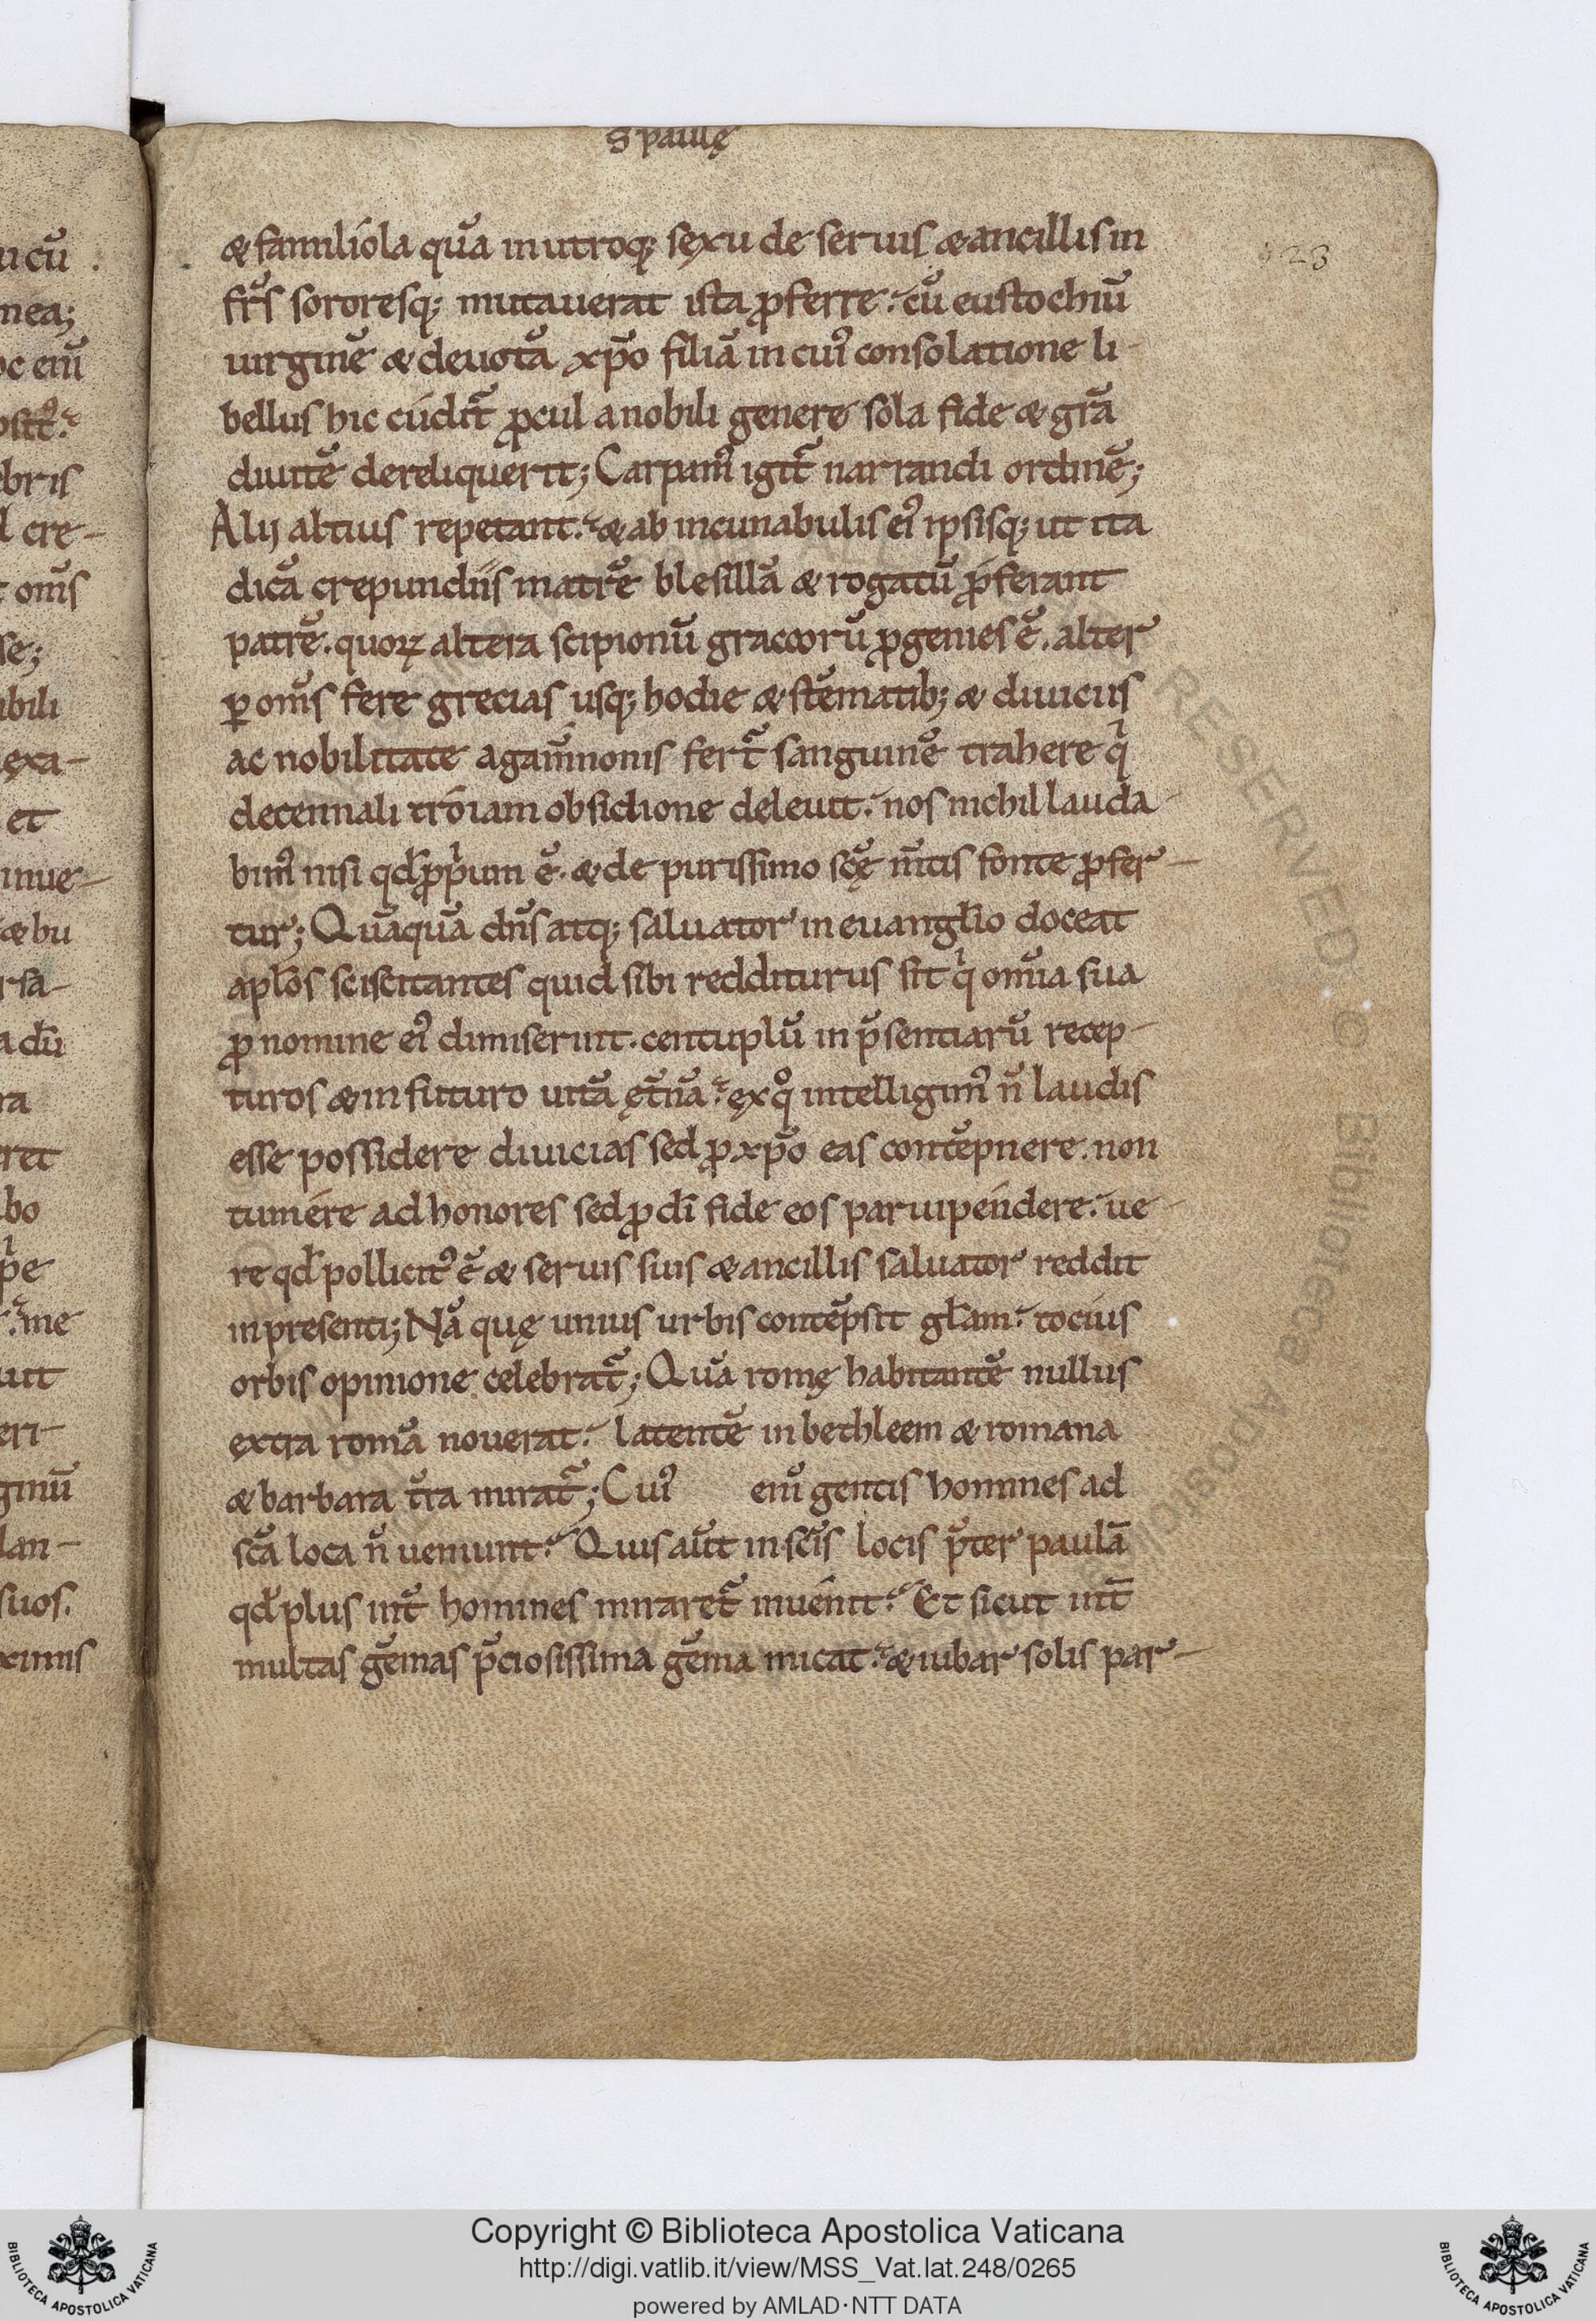 S paulę
& familiola quā in utroq; sexu de seruis & ancillis in
fr̄s sororesq; mutauerat ista ꝓferre. cū eustochiū
uirginē & deuotā xp̄o filiā in cuiꝰ consolatione li-
bellus hic cúdit᷑ ꝓcul a nobili genere sola fide & gr̄a
diuitē dereliquerit; Carpamꝰ igit᷑ narrandi ordinē;
Alij altius repetant. & ab incunabulis eiꝰ ipsisq; ut ita
dicā crepundiis matrē blesillā & rogatū ꝓferant
patrē. quoꝝ altera scipionū graccorū ꝓgenies ē. alter
ꝑ om̄s fere grecias usq; hodie & stēmatib; & diuiciis
ac nobilitate agam̄nonis fert᷑ sanguinē trahere qⁱ
decennali tróiam obsidione deleuit. nos nichil lauda-
bimꝰ nisi qd̄ ꝓpⁱum ē. & de purissimo sc̄ę m̄tis fonte ꝓfer-
tur; Quāquā dn̄s atq; saluator in euangl̄io doceat
apl̄os sciscitantes quid sibi redditurus sit qⁱ om̄ia sua
ꝓ nomine eiꝰ dimiserint. centuplū in p̄sentiarū recep-
turos & in futuro uitā ęt̄nā. ex qͦ intelligimꝰ n̄ laudis
esse possidere diuicias sed ꝓ xp̄o eas contēpnere. non
tumére ad honores sed ꝓ dī fide eos paruipéndere. ue-
re qd̄ pollicitꝰ ē & seruis suis & ancillis saluator reddit
in presenti; Nā quę unius urbis contēpsit gl̄am. tocius
orbis opinione celebrat᷑; Quā romę habitantē nullus
extra romā nouerat. latentē in bethleem & romana
& barbara t̄ra mirat᷑; Cuiꝰ eni̅ gentis homines ad
sc̄a loca n̄ ueniunt. Quis aūt in sc̄is locis p̄ter paulā
qd̄ plus int̄ homines miraret᷑ inuénit. Et sicut int̄
multas gēmas p̄ciosissima gēma micat. & iubar solis par-
u cū
nea;
oc eni̅
bris
l cre-
om̄s
se;
ibili
exa-
et
inue-
& bu
rsa-
a dn̄i
ra
ret
bo
pⁱe
me
uit
eri-
ginū
lan-
suos.
ximis
Copyright © Biblioteca Apostolica Vaticana
http://digi.vatlib.it/view/MSS_Vat.lat.248/0265
powered by AMLAD·NTT DATA
BIBLIOTECA APOSTOLICA VATICANA
BIBLIOTECA APOSTOLICA VATICANA